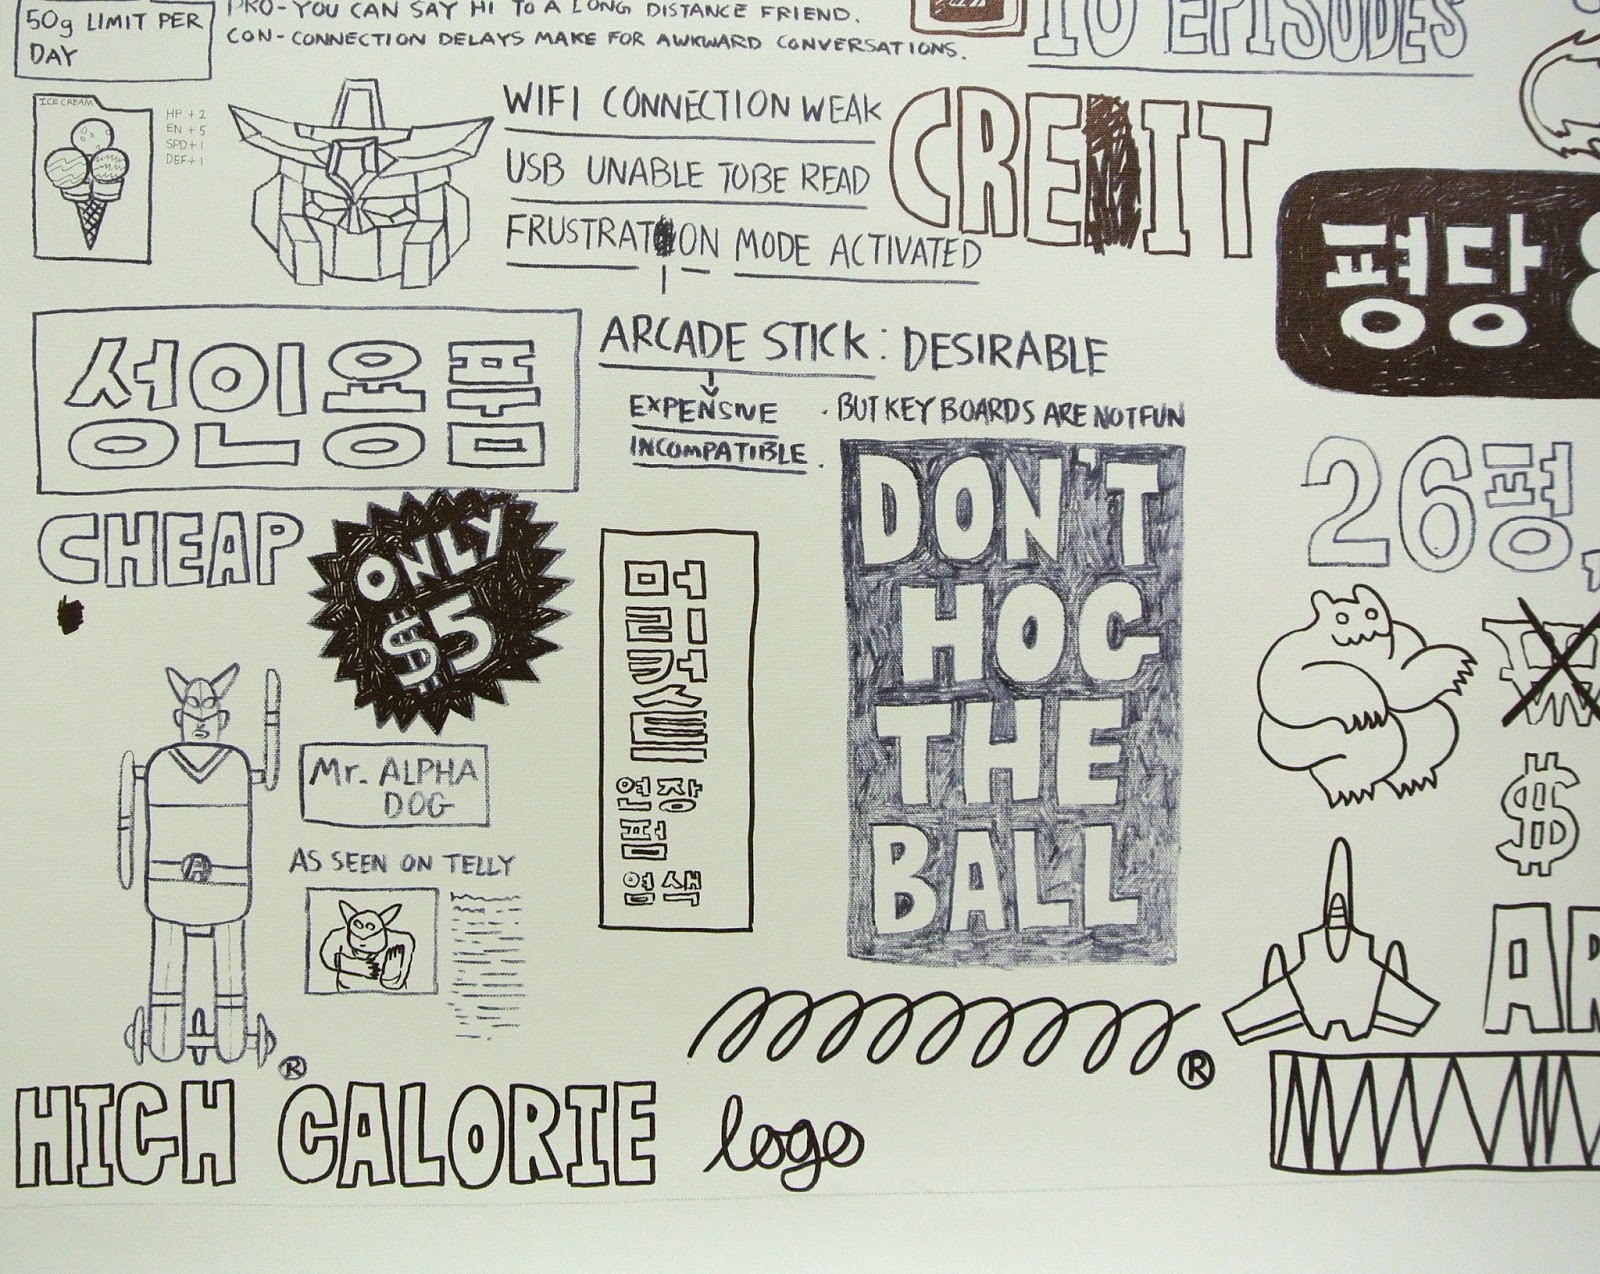 50g LIMIT PER
DAY
PRO-YOU CAN SAY HI TO A LONG DISTANCE FRIEND.
CON-CONNECTION DELAYS MAKE FOR AWKWARD CONVERSATIONS.
10 EPISODES
ICE CREAM
HP +2
EN +5
SPD+1
DEF+1
WIFI CONNECTION WEAK
USB UNABLE TO BE READ
FRUSTRATION MODE ACTIVATED
CRE IT
평당
성인용품
ARCADE STICK: DESIRABLE
EXPENSIVE
INCOMPATIBLE.
·BUT KEYBOARDS ARE NOT FUN
DON'T
HOG
THE
BALL
26평,
CHEAP
ONLY
$5
머리컷트
연장
펌
염색
Mr. ALPHA
DOG
A
AS SEEN ON TELLY
$
AR
®
HIGH CALORIE
®
logo